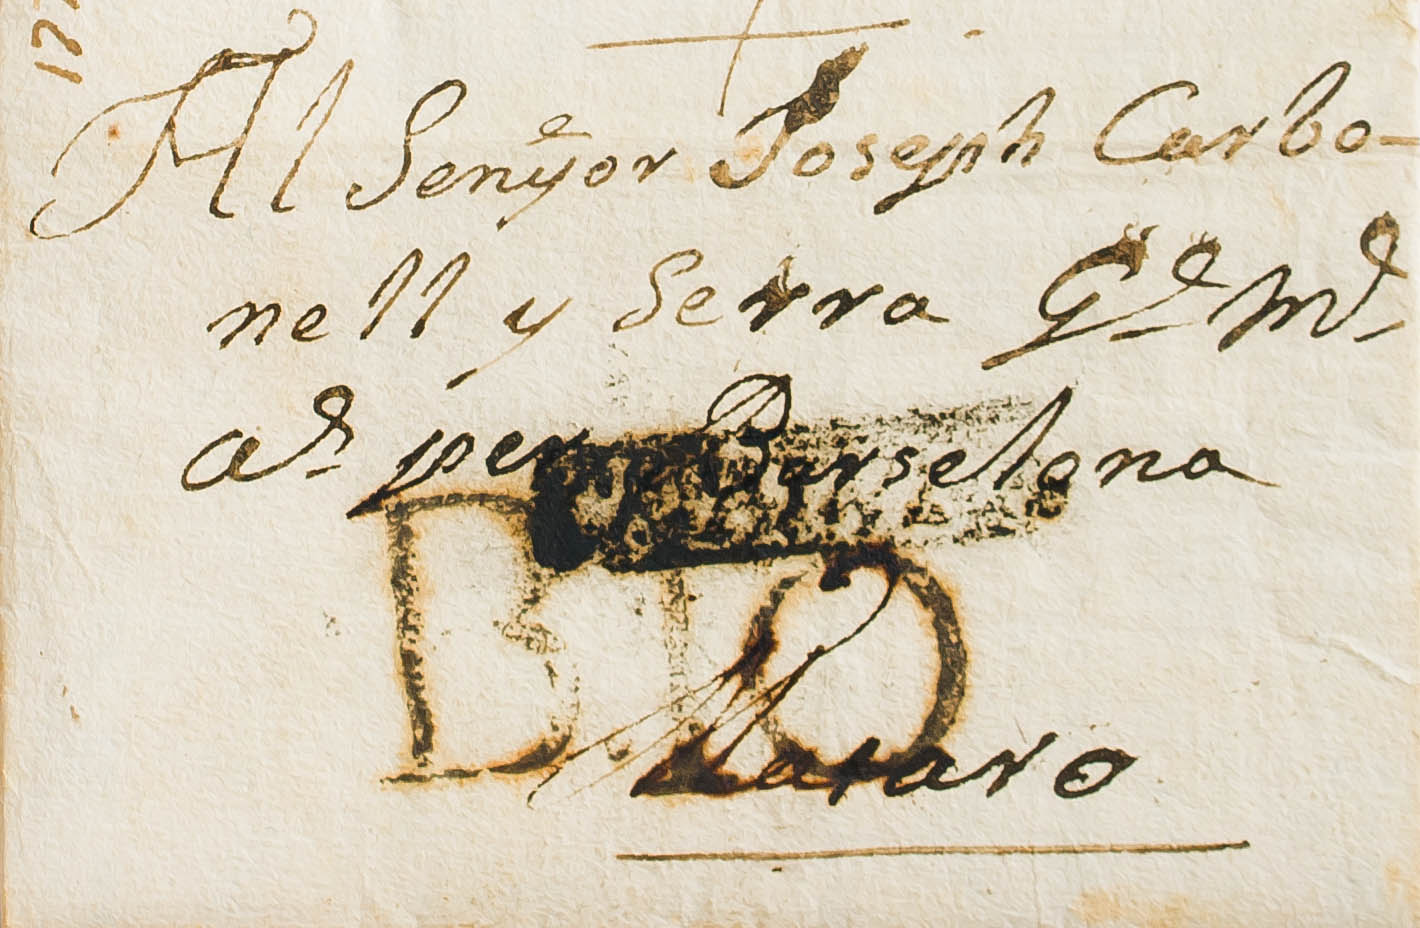 177
Al Senÿor Joseph Carbo-
nell y Serra Gᵉ. Mᵉ.
aⁿ. per Barselona
B.IO
Mataro